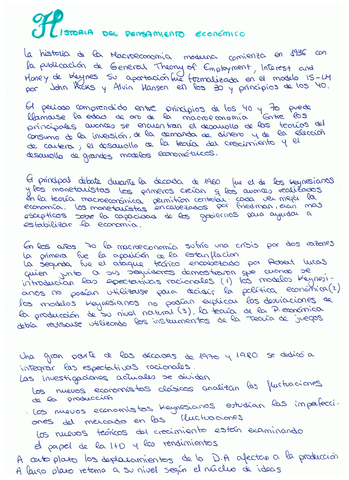 HISTORIA DEL PENSAMIENTO ECONÓMICO
La historia de la Macroeconomía moderna comienza en 1936 con
la publicación de General Theory of Employment, Interest and
Money de Keynes. Su aportación fue formalizada en el modelo IS-LM
por John Hicks y Alvin Hansen en los 30 y principios de los 40.
El periodo comprendido entre principios de los 40 y 70 puede
llamarse la edad de oro de la macroeconomía. Entre los
principales avances se encuentran el desarrollo de las teorías del
consumo de la inversión, de la demanda de dinero y de la elección
de cartera; el desarrollo de la teoría del crecimiento y el
desarrollo de grandes modelos econométricos.
El principal debate durante la década de 1960 fue el de los keynesianos
y los monetaristas. Los primeros creían q los avances realizados
en la teoría macroeconómica permitían controlar cada vez mejor la
economía. Los monetaristas encabezados por Friedman, eran más
escépticos sobre la capacidad de los gobiernos para ayudar a
estabilizar la economía.
En los años 70 la macroeconomía sufrió una crisis por dos razones
la primera fue la aparición de la estanflación
La segunda fue el ataque teórico encabezado por Robert Lucas
quien junto a sus seguidores demostraron que cuando se
introducían las expectativas racionales (1) los modelos keynesi-
anos no podían utilizarse para decidir la política económica (2)
los modelos keynesianos no podían explicar las desviaciones de
la producción de su nivel natural (3), la teoría de la P. económica
debía revisarse utilizando los instrumentos de la Teoría de juegos
Una gran parte de las décadas de 1970 y 1980 se dedicó a
integrar las expectativas racionales.
Las investigaciones actuales se dividen
Los nuevos economistas clásicos analizan las fluctuaciones
de la producción
· Los nuevos economistas keynesianos estudian las imperfecci-
ones del mercado en las fluctuaciones
Los nuevos teóricos del crecimiento están examinando
el papel de la I+D y los rendimientos
A corto plazo los desplazamientos de la D.A afectan a la producción
A largo plazo retorna a su nivel según el núcleo de ideas